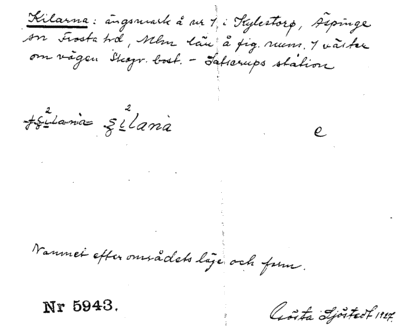 Kilarna: ängsmark å nr 7 i Kylestorp, Äspinge
sn Frosta hd, Mlm län å fig. num. 7 väster
om vägen Skogr. bost. - Satserups station
2 2
e
Namnet efter områdets läge och form.
Nr 5943.
Gösta Sjöstedt 1927.